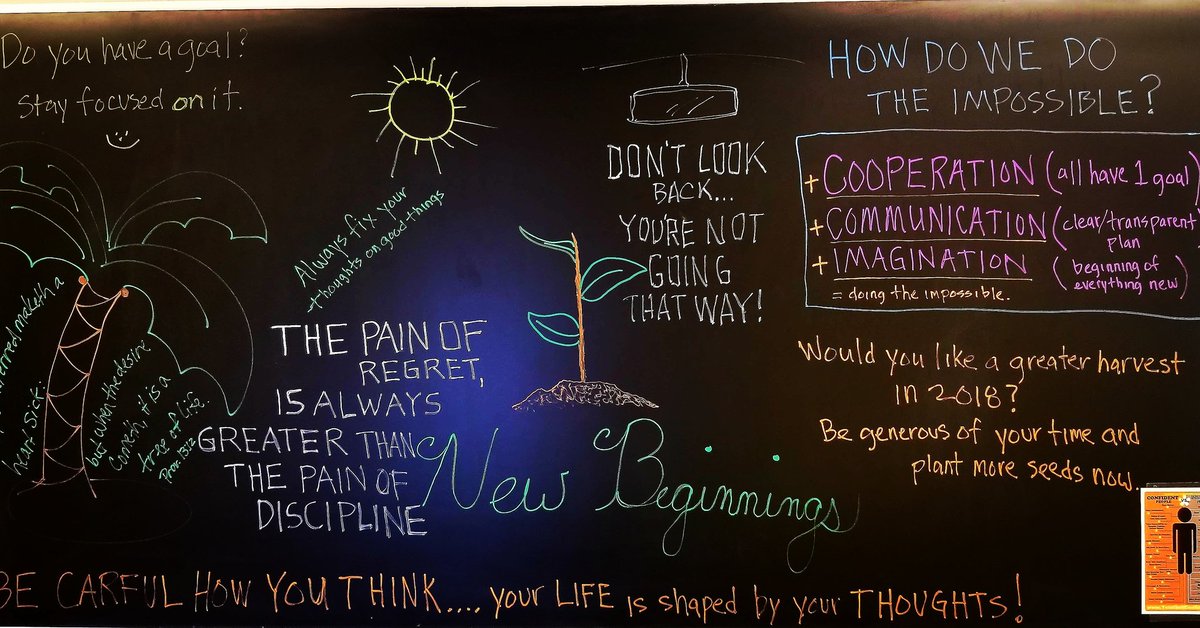 Do you have a goal?
Stay focused on it.
Always fix your
thoughts on good things
DON'T LOOK
BACK...
YOU'RE NOT
GOING
THAT WAY!
HOW DO WE DO
THE IMPOSSIBLE?
+ COOPERATION (all have 1 goal)
+ COMMUNICATION (clear/transparent
plan
+ IMAGINATION (beginning of
everything new)
= doing the impossible.
maketh a
heart sick:
but when the desire
cometh, it is a
tree of life.
Prov. 13:12
THE PAIN OF
REGRET,
IS ALWAYS
GREATER THAN
THE PAIN OF
DISCIPLINE
New Beginnings
Would you like a greater harvest
in 2018?
Be generous of your time and
plant more seeds now..
CONFIDENT
PEOPLE
BE CARFUL HOW YOU THINK.... your LIFE is shaped by your THOUGHTS!